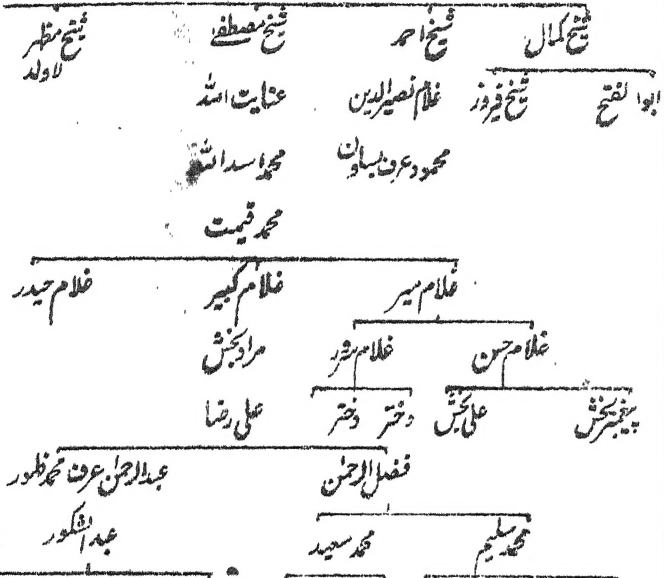 شیخ کمال شیخ احمد شیخ مصطفےٰ شیخ مظہر
لاولد
ابوالفتح شیخ فیروز غلام نصیرالدین عنایت اللہ
محمود عرف بساون محمد اسد اللہ
محمد قیمت
غلام میر غلام کبیر غلام حیدر
غلام حسن غلام شرر مراد بخش
پیغمبر بخش علی بخش دختر دختر علی رضا
فضل الرحمٰن عبدالرحمٰن عرف محمد ظہور
محمد سلیم محمد سعید عبد الشکور